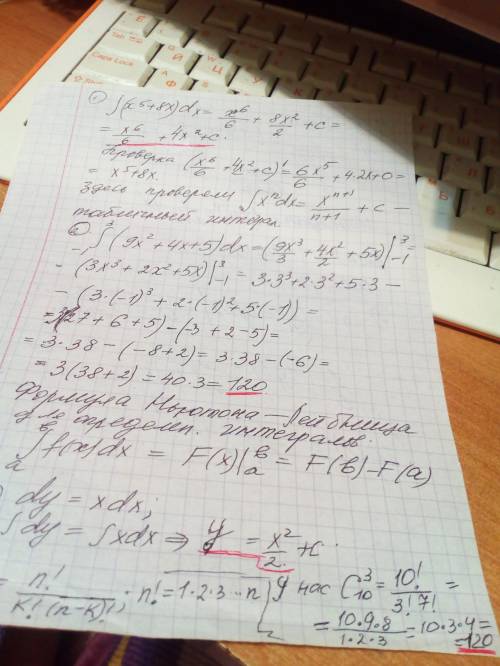 ① ∫(x⁵+8x)dx = x⁶/6 + 8x²/2 + c =
= x⁶/6 + 4x² + c.
Проверка (x⁶/6 + 4x² + c)' = 6x⁵/6 + 4·2x + 0 =
= x⁵+8x.
Здесь проверяем ∫xⁿdx = xⁿ⁺¹/(n+1) + c —
табличный интеграл.
∫₋₁³ (9x²+4x+5)dx = (9x³/3 + 4x²/2 + 5x)|₋₁³ =
= (3x³+2x²+5x)|₋₁³ = 3·3³+2·3²+5·3 –
– (3·(-1)³+2·(-1)²+5·(-1)) =
= 3(27+6+5) – (-3+2-5) =
= 3·38 – (-8+2) = 3·38 – (-6) =
= 3(38+2) = 40·3 = 120
Формула Ньютона — Лейбница
для определ. интегралов.
∫ₐᵇ f(x)dx = F(x)|ₐᵇ = F(в) – F(a)
) dy = xdx;
∫dy = ∫xdx ⇒ y = x²/2 + c.
= n!/(k!(n-k)!) · n! = 1·2·3...n У нас C₁₀³ = 10!/(3!7!) =
= 10·9·8/(1·2·3) = 10·3·4 =
= 120
Tab
Caps Lock